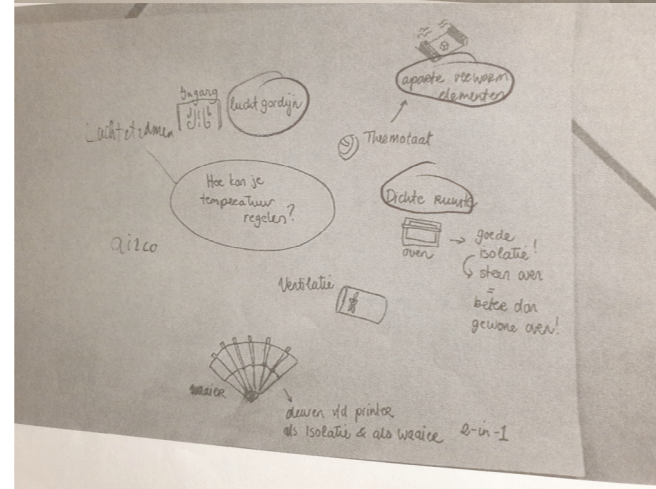 Ingang
luchtgordijn
Luchtstromen
aparte verwarm
elementen
Thermotaat
Hoe kan je
temperatuur
regelen?
Dichte ruimte
airco
oven
→ goede
isolatie!
steen oven
=
beter dan
gewone oven!
Ventilatie
waaier
deuren v/d printer
als isolatie & als waaier 2-in-1